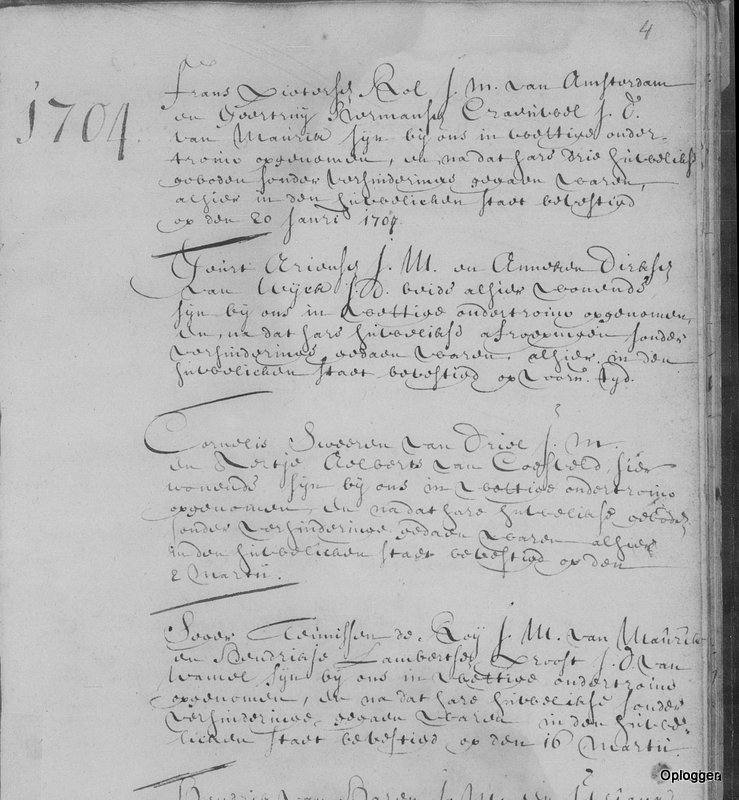 4
1704
Frans Pieterse Kol J. M. van Amsterdam
en Geertruy Hermanse J. D.
van Maurik sijn bij ons in wettige onder-
trouw opgenomen, en, na dat hare drie huwelikse
geboden sonder verhinderinge gegaen waren,
alhier in den huwelicken staet bevestigd
op den 20 Janri 1704.
Geurt Ariense J. M. en Anneken Dirkse
van Wyck J. D. beide alhier wonende,
sijn bij ons in wettige ondertrouw opgenomen,
en, na dat hare huwelikse afroepingen sonder
verhinderinge gedaen waren, alhier in den
huwelicken staet bevestigd op voorn. tyd.
Cornelis Sweeren van Driel J. M.
en Aertje Aelberts van Coesveld, hier
wonende sijn bij ons in wettige ondertrouw
opgenomen, en na dat hare huwelikse geboden
sonder verhinderinge gedaen waren alhier
in den huwelicken staet bevestigd op den
2 Martii.
Teunissen de Roy J. M. van Maurik
en Hendrikje Lambertse Proost J. D van
Wamel sijn bij ons in wettige ondertrouw
opgenomen, en na dat hare huwelikse sonder
verhinderinge gegaen waren in den huwe-
licken staet bevestigd op den 16 Martii
van J. M. en
Oploggen